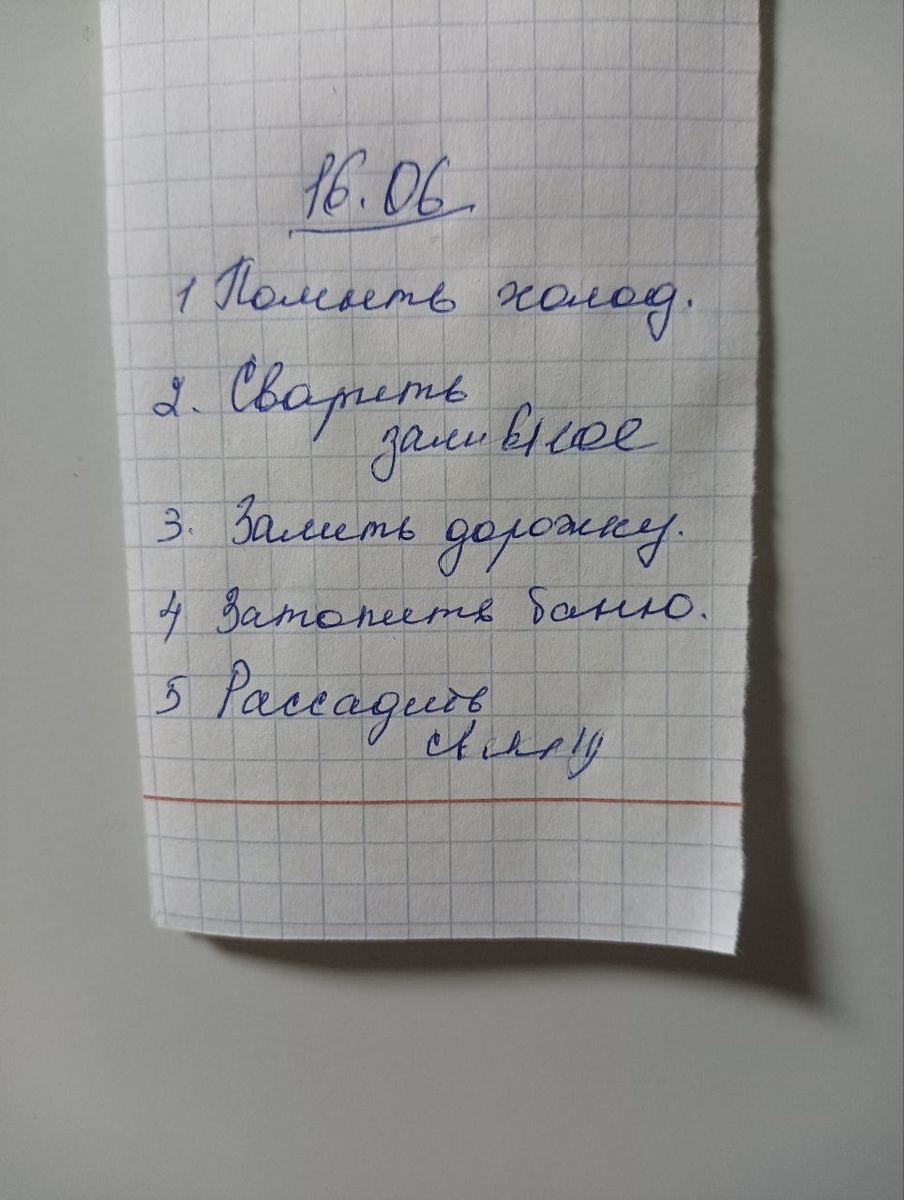 16.06
1 Помыть холод.
2. Сварить
заливное
3. Залить дорожку.
4 Затопить баню.
5 Рассадить